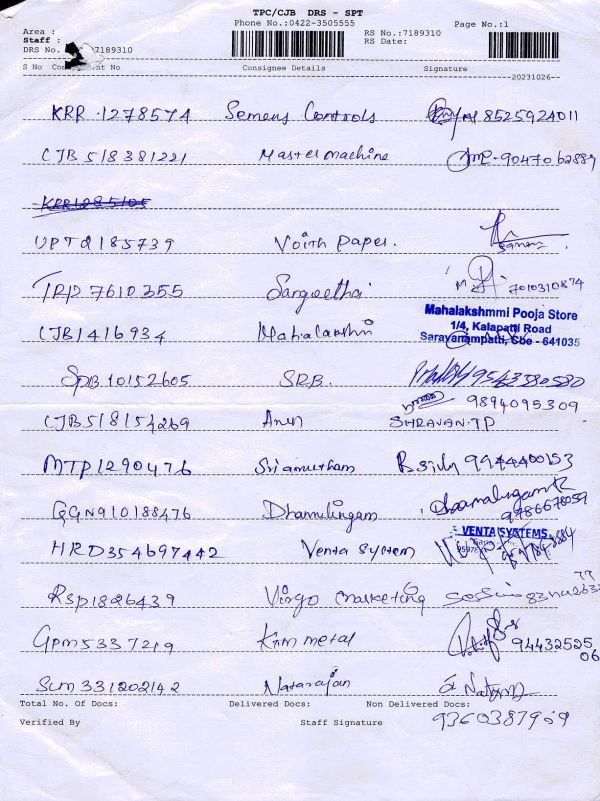 TPC/CJB DRS - SPT
Phone No.:0422-3505555
Page No.:1
Area :
Staff :
DRS No. 7189310
RS No.:7189310
RS Date:
S No Con nt No Consignee Details Signature
20231026
KRR 1278574 Semens Controls 8525924011
CJB 518381221 Master machine 9047062889
KRR1285105
UPT2185739 Voith paper.
TRP 7610355 Sargeetha 7010310874
CJB1416934 Mahalakshmi
Mahalakshmmi Pooja Store
1/4, Kalapatti Road
Saravanampatti, Cbe - 641035
SPB10152605 SRB.
9894095309
CJB518154269 Arun SHRAVAN.T.P
MTP1290476 Sriamutham 9944400153
GGN910188476 Dhamulingam
9786678059
HRD354697442 Venta System VENTA SYSTEMS
RSP1826439 Virgo marketing
GPM5337219 Knm metal 9443252506
SLM331202142 Natarajan
Total No. Of Docs: Delivered Docs: Non Delivered Docs:
9360387909
Verified By Staff Signature